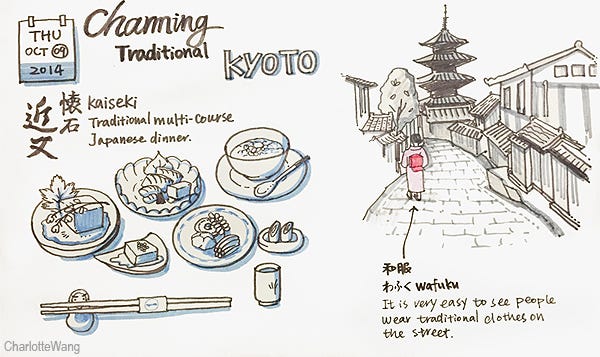 THU
OCT 09
2014
Charming
Traditional
KYOTO
近又
懐石
kaiseki
Traditional multi-course
Japanese dinner.
和服
わふく wafuku
It is very easy to see people
wear traditional clothes on
the street.
CharlotteWang